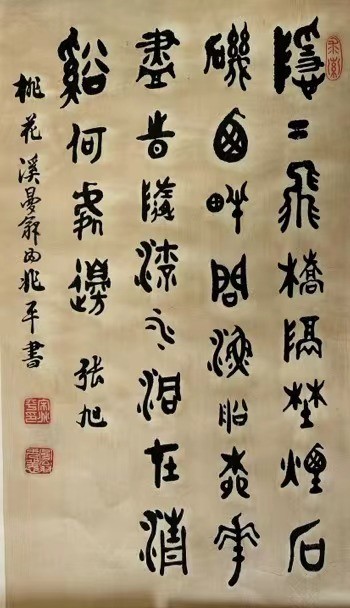 隱二飛橋隔埜煙石
磯西畔問漁船桃花
盡隨流水洞在清
谿何處邊 張旭
桃花溪曼兆平書